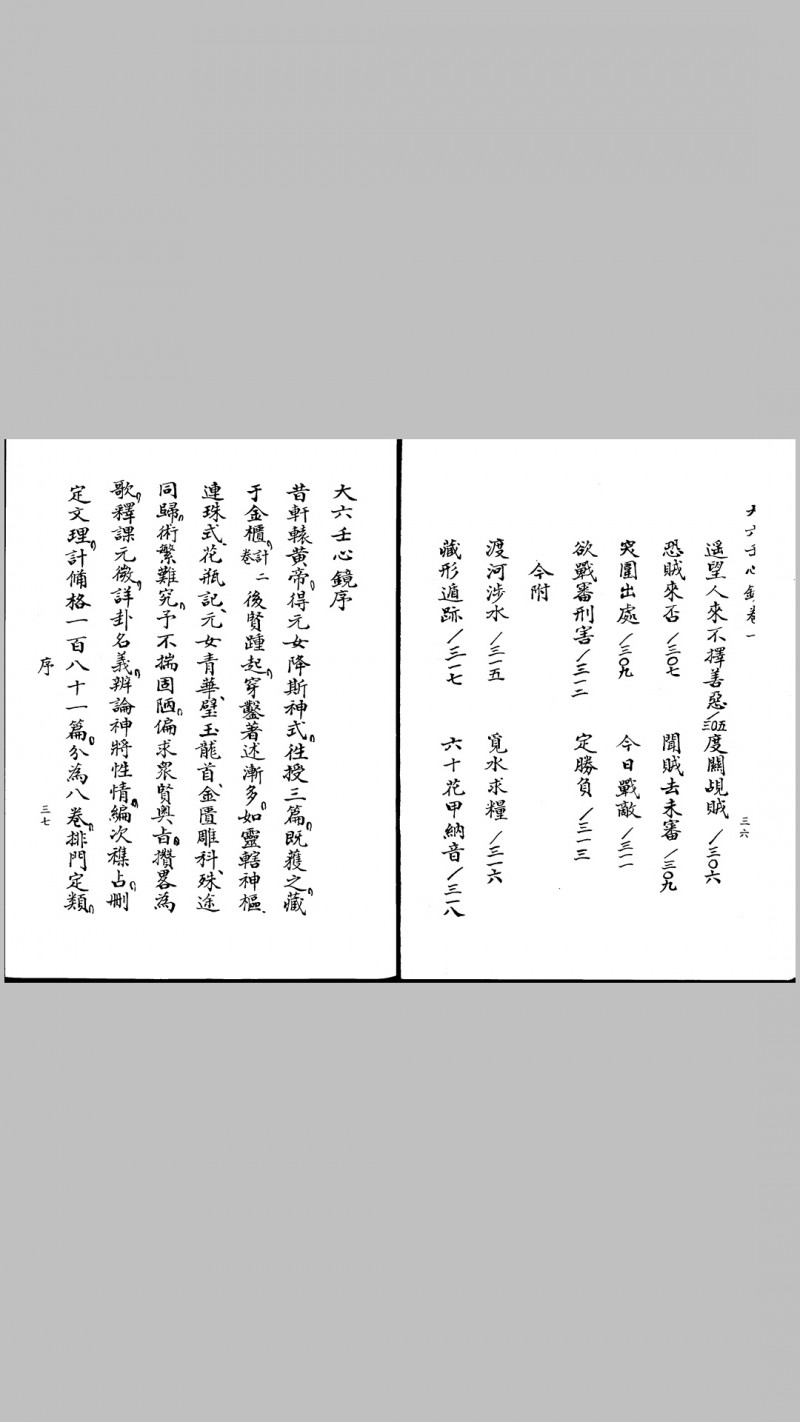 大六壬心鏡卷一
遥望人來不擇善惡/三0五 度關覘賊/三0六
恐賊來否/三0七 聞賊去未審/三0九
突圍出處/三0九 今日戰敵/三一一
欲戰審刑害/三一二 定勝負/三一三
今附
渡河涉水/三一五 覓水求糧/三一六
藏形遁跡/三一七 六十花甲納音/三一八
三六
大六壬心鏡序
昔軒轅黄帝,得元女降斯神式,往授三篇,既獲之藏
于金櫃,計二卷後賢踵起,穿鑿著述漸多,如靈轄神樞、
連珠式、花瓶記、元女青華、璧玉龍首、金匱雕科、殊途
同歸,術繁難究,予不揣固陋,偏求衆賢奥旨,攢畧為
歌,釋課元微,詳卦名義,辨論神將性情,編次襍占,刪
定文理,計備格一百八十一篇,分為八卷,排門定類,
序
三七